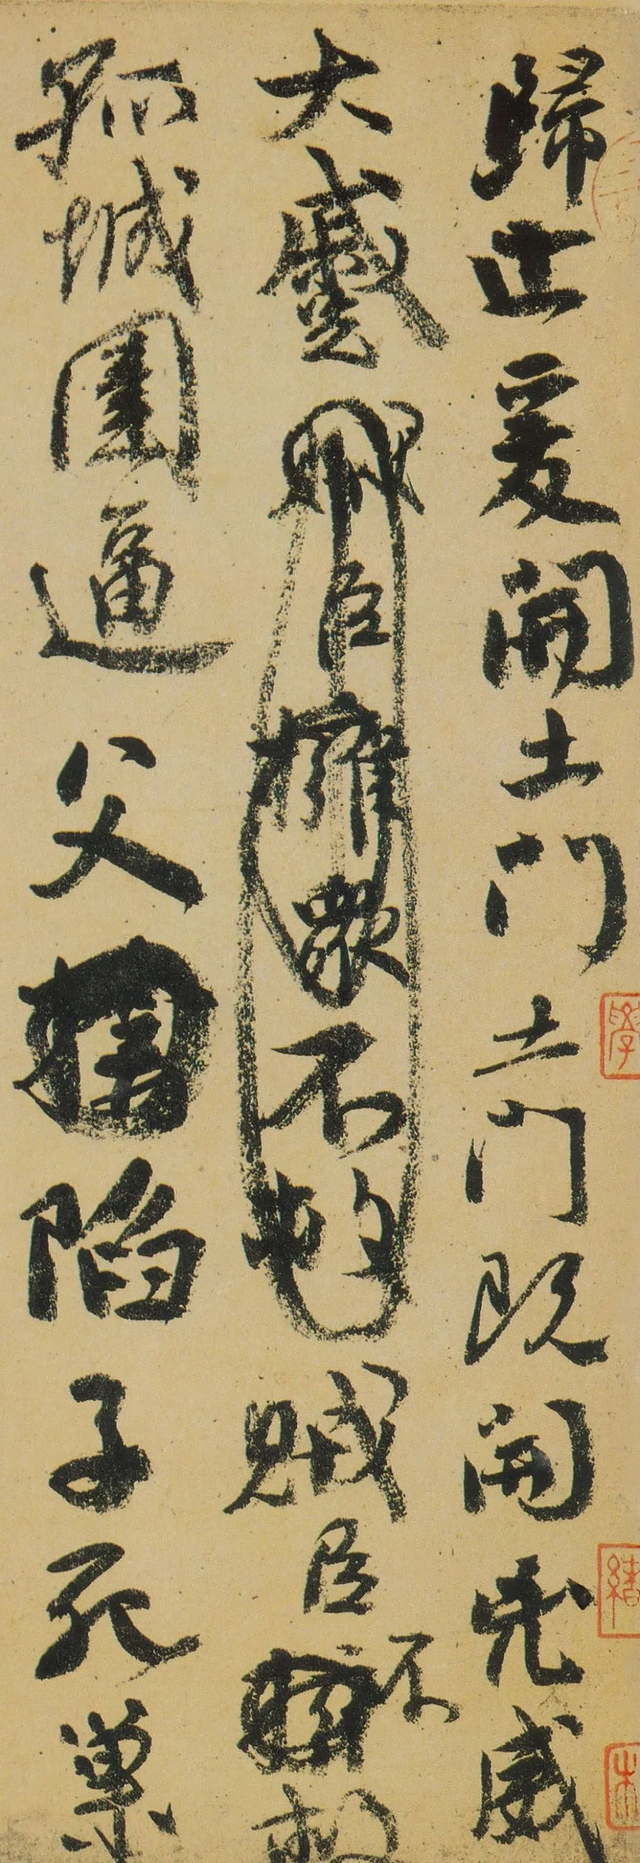 歸止爰開土門土門既開兇威
大蹙賊臣擁眾不救賊臣不救
孤城圍逼父陷子死巢